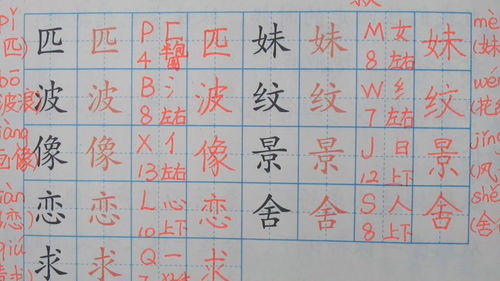 pǐ 匹 匹 P 匚 匹 妹 妹 M 女 妹 mè
(匹) 4 半包围 8 左右 (妹
bō 波 波 B 氵 波 纹 纹 W 纟 纹 wé
波浪 8 左右 7 左右
iàng 像 像 X 亻 像 景 景 J 日 景 jǐng
画像 13 左右 12 上下 (风
iàn 恋 恋 L 心 恋 舍 舍 S 人 舍 shè
(恋) 10 上下 8 上下 (舍
iú 求 求 Q 一 求
7